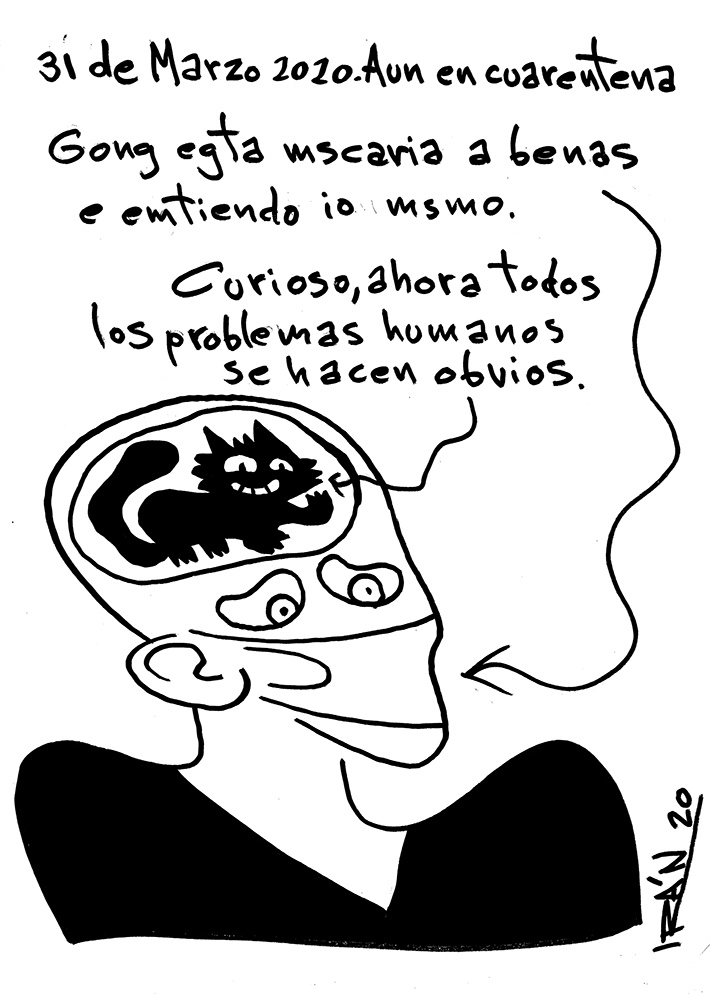 31 de Marzo 2020. Aun en cuarentena
Gong egta mscaria a benas
e emtiendo io msmo.
Curioso, ahora todos
los problemas humanos
se hacen obvios.
IRÁN 20